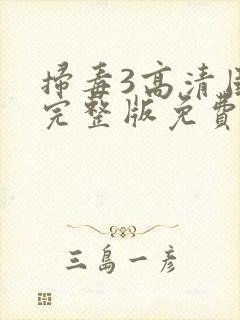 掃毒3高清
完整版免費
三島一彥